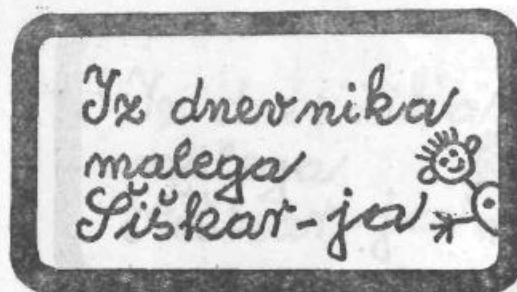 Iz dnevnika
malega
Šiškar-ja